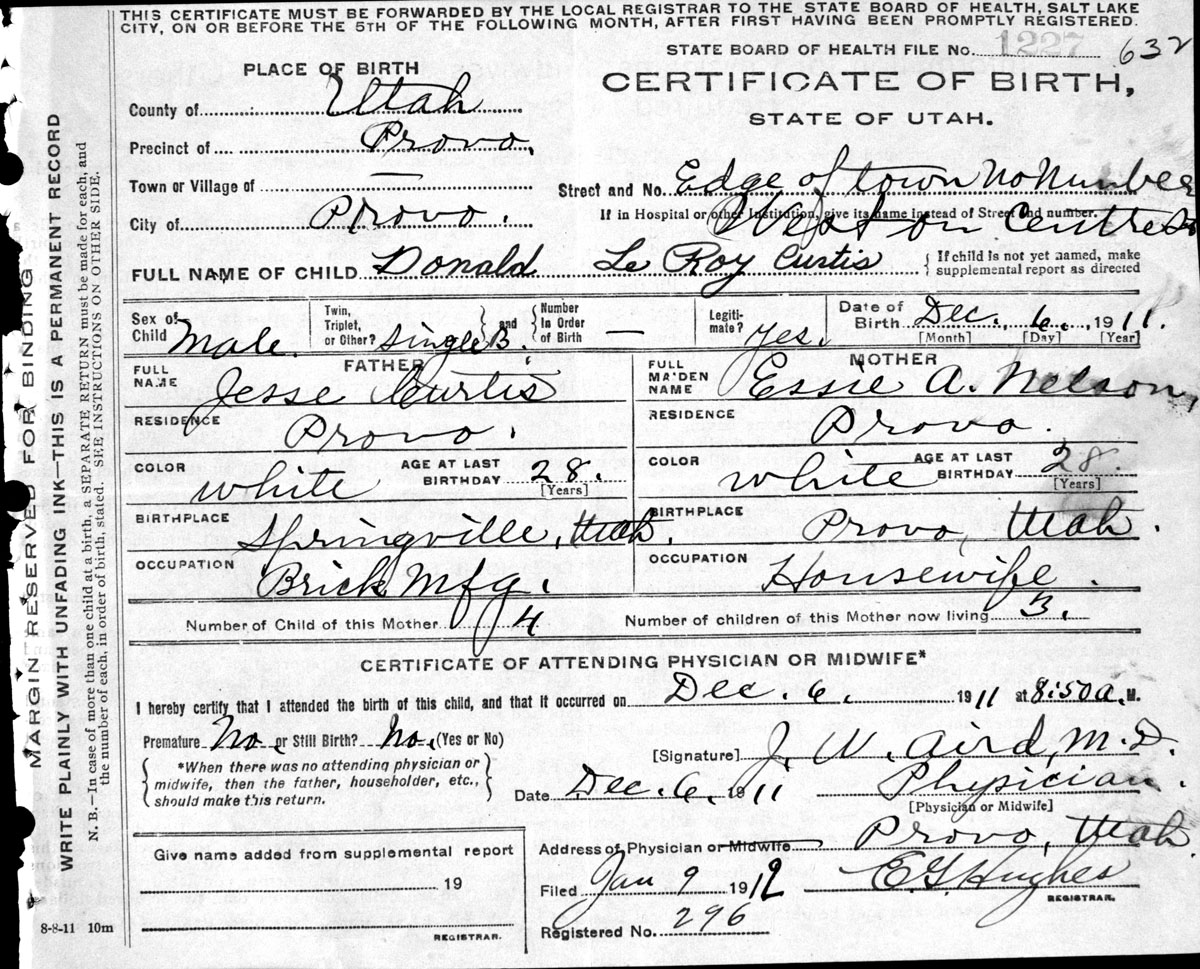 THIS CERTIFICATE MUST BE FORWARDED BY THE LOCAL REGISTRAR TO THE STATE BOARD OF HEALTH, SALT LAKE
CITY, ON OR BEFORE THE 5TH OF THE FOLLOWING MONTH, AFTER FIRST HAVING BEEN PROMPTLY REGISTERED.
STATE BOARD OF HEALTH FILE No. 1227 632
PLACE OF BIRTH
CERTIFICATE OF BIRTH,
STATE OF UTAH.
County of Utah
Precinct of Provo.
Town or Village of —
Street and No. Edge of town No Number
City of Provo.
If in Hospital or other Institution, give its name instead of Street and number.
West on Centre St
FULL NAME OF CHILD Donald Le Roy Curtis
{ If child is not yet named, make
supplemental report as directed
Sex of Child Male.
Twin, Triplet, or Other? Single B. and Number In Order of Birth —
Legitimate? Yes.
Date of Birth Dec. 6. 1911.
[Month] [Day] [Year]
FATHER
MOTHER
FULL NAME Jesse Curtis
FULL MAIDEN NAME Essie A. Nelson,
RESIDENCE Provo.
RESIDENCE Provo.
COLOR White AGE AT LAST BIRTHDAY 28. [Years]
COLOR White AGE AT LAST BIRTHDAY 28. [Years]
BIRTHPLACE Springville, Utah.
BIRTHPLACE Provo, Utah.
OCCUPATION Brick Mfg.
OCCUPATION Housewife.
Number of Child of this Mother 4
Number of children of this Mother now living 3.
CERTIFICATE OF ATTENDING PHYSICIAN OR MIDWIFE*
I hereby certify that I attended the birth of this child, and that it occurred on Dec. 6. 1911 at 8:50 a. M.
Premature No. or Still Birth? No. (Yes or No)
*When there was no attending physician or
midwife, then the father, householder, etc.,
should make this return.
[Signature] J. W. Aird, M.D.
Date Dec. 6. 1911 Physician.
[Physician or Midwife]
Address of Physician or Midwife Provo, Utah.
Filed Jan 9 1912 E G Hughes
REGISTRAR.
Registered No. 296
Give name added from supplemental report
19
REGISTRAR.
8-8-11 10m
MARGIN RESERVED FOR BINDING
WRITE PLAINLY WITH UNFADING INK—THIS IS A PERMANENT RECORD
N. B.—In case of more than one child at a birth, a SEPARATE RETURN must be made for each, and
the number of each, in order of birth, stated. SEE INSTRUCTIONS ON OTHER SIDE.